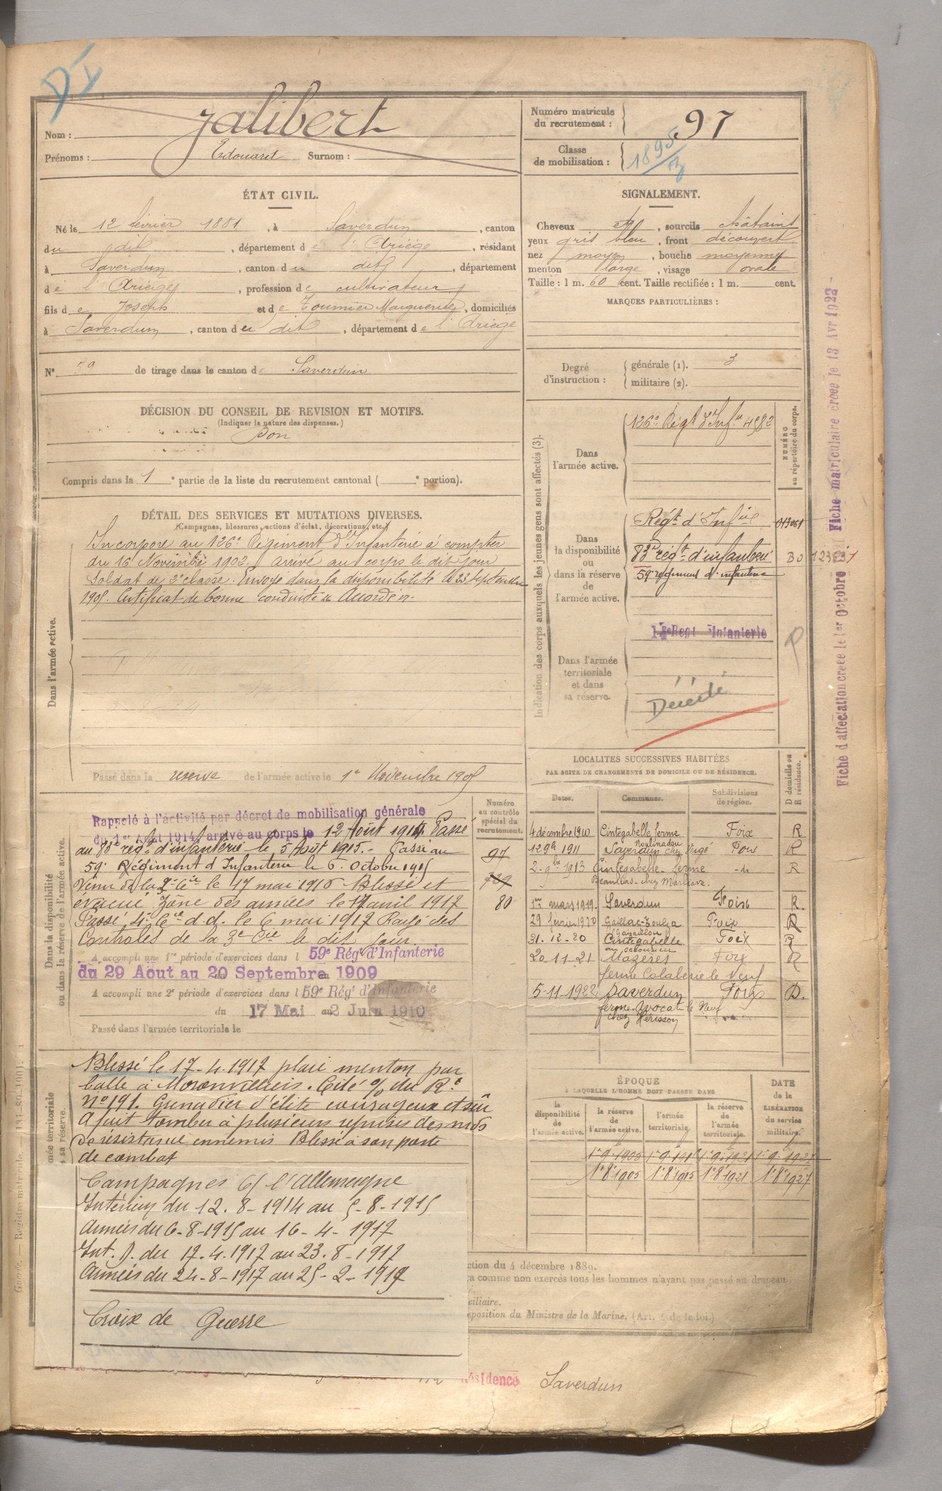 D I
Nom : Jalibert
Prénoms : Edouard Surnom :
Numéro matricule
du recrutement : 97
Classe
de mobilisation : 1895
ÉTAT CIVIL.
Né le 12 février 1881, à Saverdun, canton
du dit, département de l'Ariège, résidant
à Saverdun, canton du dit, département
de l'Ariège, profession de cultivateur
fils de Joseph et de Tournier Marguerite, domiciliés
à Saverdun, canton du dit, département de l'Ariège
N° de tirage dans le canton de Saverdun
DÉCISION DU CONSEIL DE REVISION ET MOTIFS.
(Indiquer la nature des dispenses.)
Bon
Compris dans la 1e partie de la liste du recrutement cantonal ( e portion).
DÉTAIL DES SERVICES ET MUTATIONS DIVERSES.
(Campagnes, blessures, actions d'éclat, décorations, etc.)
Dans l'armée active.
Incorporé au 126e Régiment d'Infanterie à compter
du 16 Novembre 1902. Arrivé au corps le dit jour
Soldat de 2e classe. Envoyé dans la disponibilité le 23 Septembre
1905. Certificat de bonne conduite Accordé.
Passé dans la réserve de l'armée active le 1er Novembre 1905
SIGNALEMENT.
Cheveux, sourcils châtains
yeux gris bleu, front découvert
nez moyen, bouche moyenne
menton large, visage ovale
Taille : 1 m. 60 cent. Taille rectifiée : 1 m. cent.
MARQUES PARTICULIÈRES :
Degré
d'instruction :
générale (1). 3
militaire (2).
Indication des corps auxquels les jeunes gens sont affectés (3).
NUMÉRO
au répertoire du corps.
Dans
l'armée active.
126e Régt d'Infie 4982
Dans
la disponibilité
ou
dans la réserve
de
l'armée active.
Régt d'Infie
83e régt d'infanterie
59e régiment d'infanterie
Régt Infanterie
Dans l'armée
territoriale
et dans
sa réserve.
Décédé
Fiche d'affectation créée le 1er Octobre
Fiche matriculaire créée le 13 Avr 1922
LOCALITÉS SUCCESSIVES HABITÉES
PAR SUITE DE CHANGEMENTS DE DOMICILE OU DE RÉSIDENCE.
Dates. Communes. Subdivisions
de région.
D domicile ou
R résidence.
4 décembre 1910 Cintegabelle ferme Foix R
12 9bre 1911 Saverdun Foix R
2 9bre 1913 Cintegabelle ferme de R
17 mars 1919 Saverdun Foix R
29 février 1920 Foix R
31.12.20 Cintegabelle Foix R
20.11.21 Mazères Foix R
ferme Calaberie le Neuf
5.11.1922 Saverdun Foix D.
ferme Avocat le Neuf
chez Hérisson
Numéro
au contrôle
spécial du
recrutement.
97
80
Dans la disponibilité
ou dans la réserve de l'armée active.
Rappelé à l'activité par décret de mobilisation générale
du 1er Août 1914, arrivé au corps le 12 Août 1914. Passé
au 83e régt d'infanterie le 5 Août 1915. Passé au
59e Régiment d'Infanterie le 6 Octobre 1915
Venu de la 2e Cie le 17 mai 1916. Blessé et
évacué Zone des armées le 17 avril 1917
Passé 4e Cie d. d. le 6 mai 1917 Rayé des
Contrôles de la 3e Cie le dit jour.
A accompli une 1re période d'exercices dans le 59e Rég d'Infanterie
du 29 Août au 20 Septembre 1909
A accompli une 2e période d'exercices dans le 59e Rég d'Infanterie
du 17 Mai au 2 Juin 1910
Passé dans l'armée territoriale le
Blessé le 17-4-1917 plaie menton par
balle à Moronvilliers. Cité o/ du Rt
N° 191. Grenadier d'élite courageux et sûr
A fait tomber à plusieurs reprises des nids
de résistance ennemis Blessé à son poste
de combat
Campagnes C/ l'Allemagne
Intérieur du 12.8-1914 au 5-8-1915
Armées du 6-8-1915 au 16-4-1917
Int. B. du 17.4.1917 au 23.8-1917
Armées du 24-8-1917 au 25-2-1919
Croix de Guerre
ÉPOQUE
À LAQUELLE L'HOMME DOIT PASSER DANS
la
disponibilité
de
l'armée active.
la réserve
de
l'armée active.
l'armée
territoriale.
la réserve
de
l'armée
territoriale.
DATE
de la
LIBÉRATION
du service
militaire.
1er 8bre 1905 1er 8 1915 1er 8 1921 1er 8 1927
ction du 4 décembre 1889.
a comme non exercés tous les hommes n'ayant pas passé au drapeau
xiliaire.
sposition du Ministre de la Marine. (Art. 4 de la loi.)
Résidence Saverdun